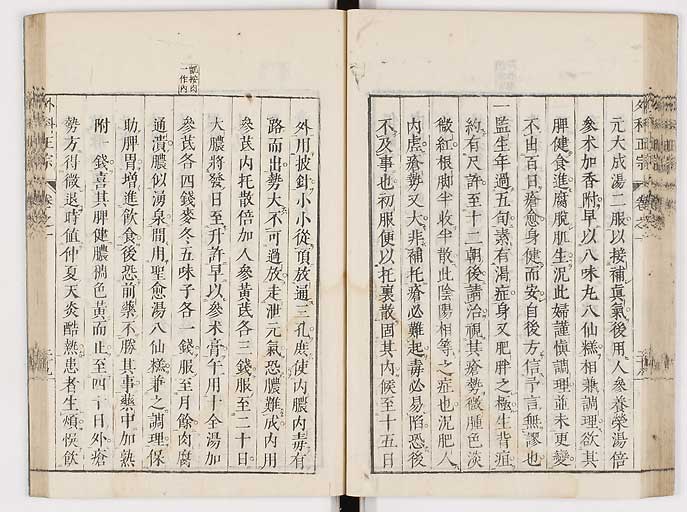 元大成湯二服以接補真氣後用人參養榮湯倍
參朮加香附早以八味丸八仙糕相兼調理飲其
脾健食進腐脫肌生況此婦謹慎調理並未更變
不由百日瘡愈身健而安自後方信予言無謬也
一監生年過五旬素有渴症身又肥胖之極生背疽
約有尺許至十二朝後請治視其瘡勢微腫色淡
微紅根脚半收半散此陰陽相等之症也況肥人
内虛瘡勢又大非補托瘡必難起毒必易陷恐後
不及事也初服便以托裏散固其内候至十五日
外用披針小小從頂放通三孔庶使内膿内毒有
路而出勢大不可過放走泄元氣恐膿難成内用
參芪内托散倍加人參黃芪各三錢服至二十日
大膿將發日至升許早以參朮膏午用十全湯加
參芪各四錢麥冬五味子各一錢服至月餘肉腐
通潰膿似湧泉間用聖愈湯八仙糕兼之調理保
助脾胃增進飲食後恐前藥不勝其事藥中加熟
附一錢喜其脾健膿稠色黃而止至四十日外瘡
勢方得微退時值仲夏天炎酷熱患者生煩悞飲
一作内
外科正宗
卷之一
外科正宗
卷之一